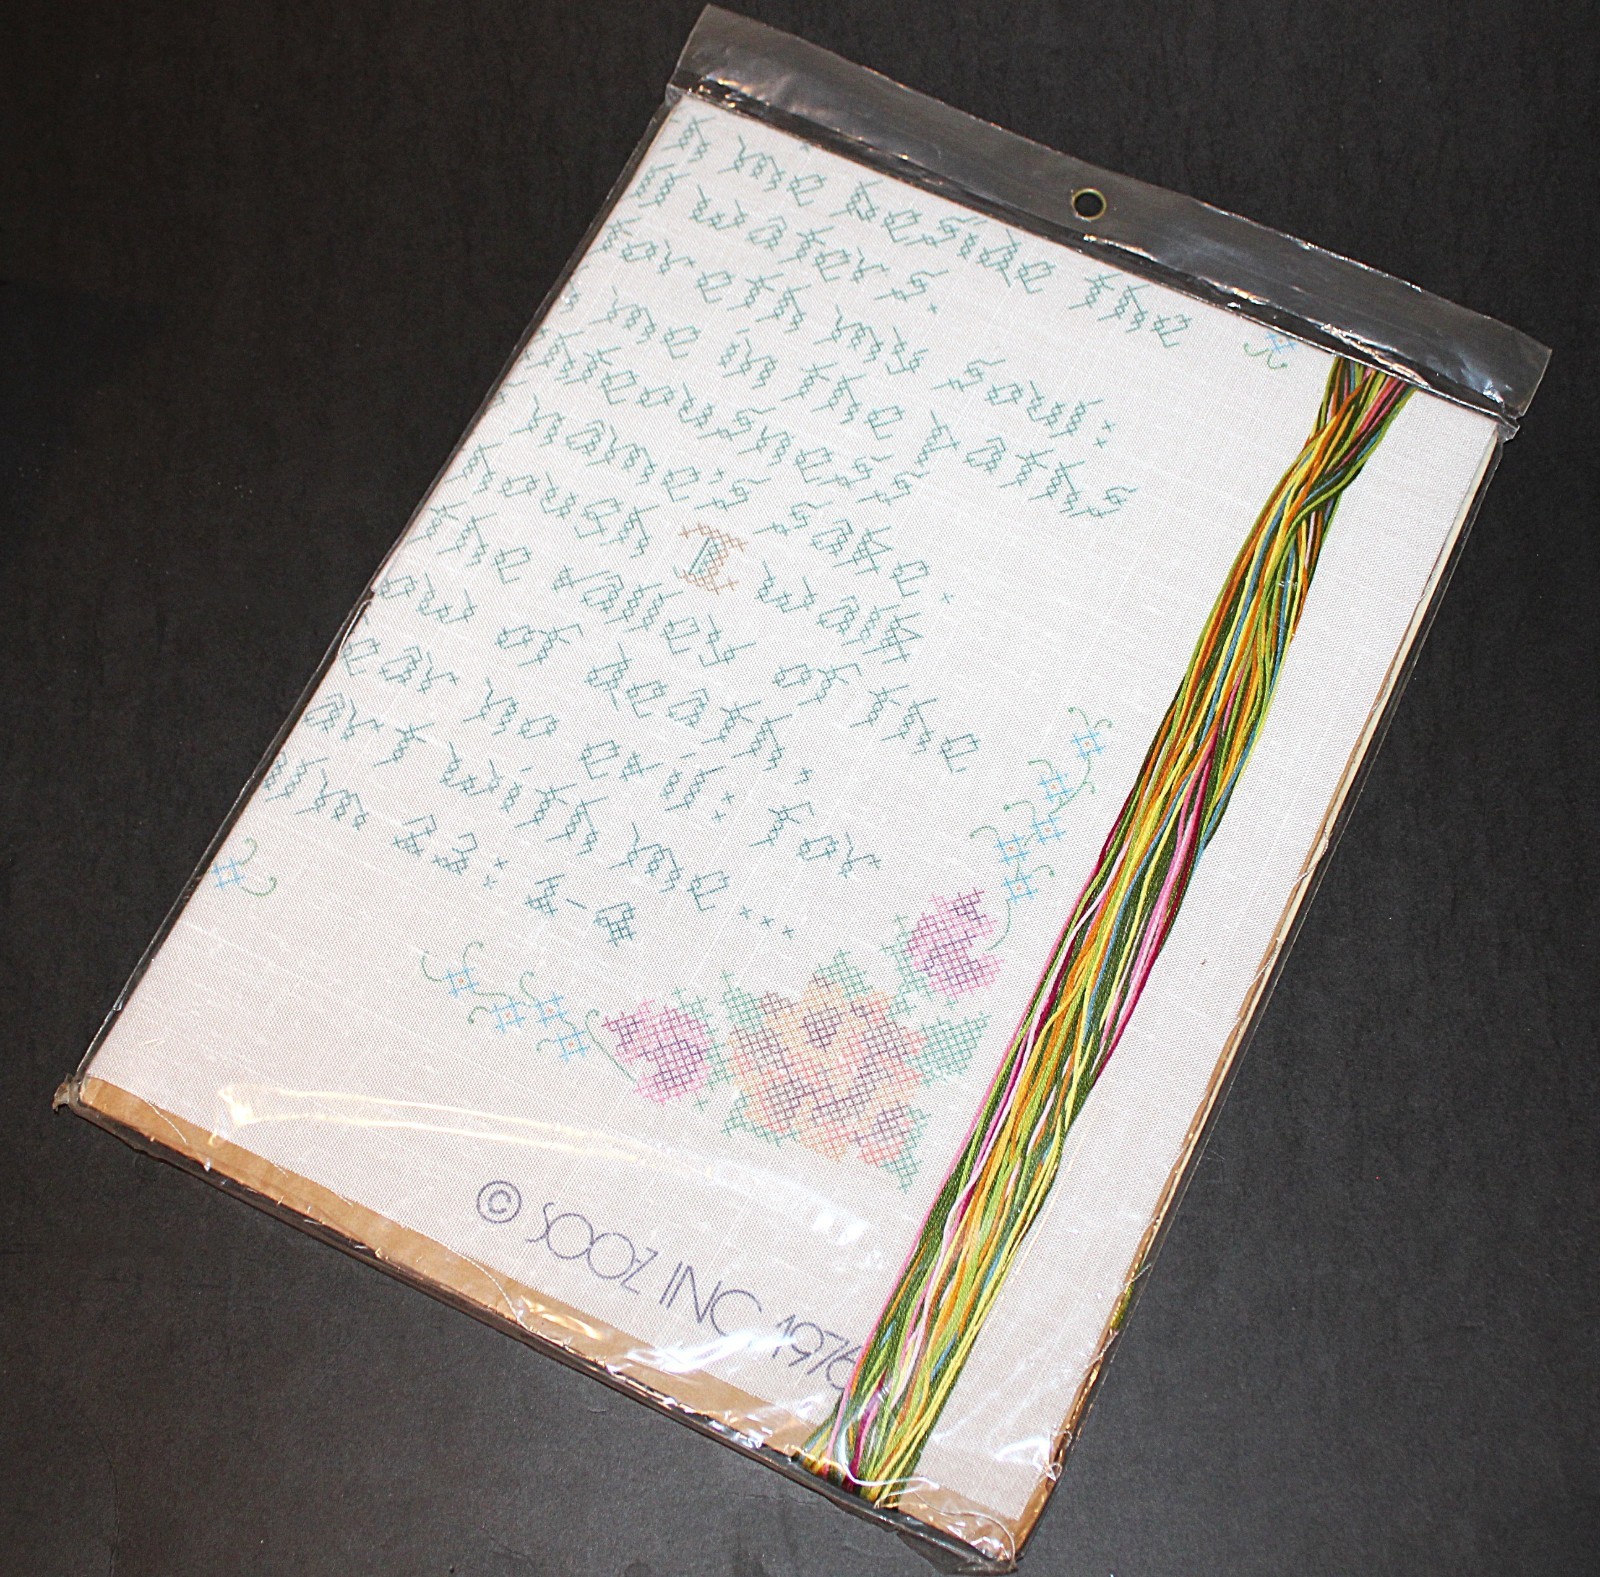 th me beside the
ill waters.
toreth my soul:
me in the paths
hteousness
name's sake.
though I walk
the valley of the
ow of death,
ear no evil: for
art with me...
lm 23: 1-4
© SOOZ INC. 1976